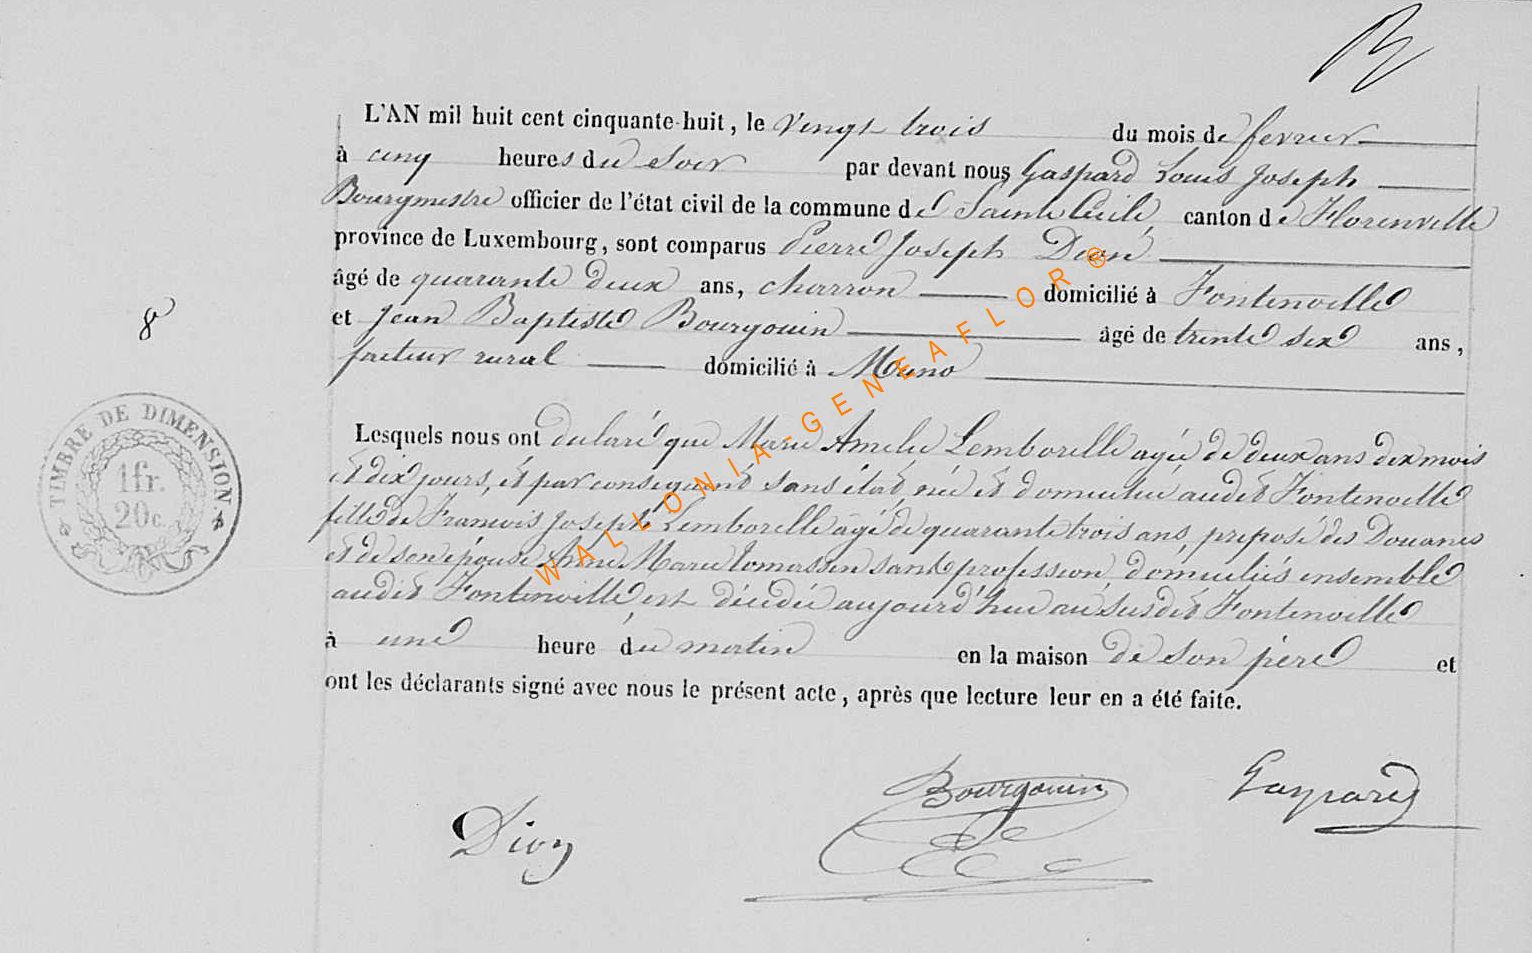 L'AN mil huit cent cinquante-huit, le vingt trois du mois de fevrier
à cinq heures du soir par devant nous Gaspard Louis Joseph
Bourgmestre officier de l'état civil de la commune de Sainte Cécile, canton de Florenville
province de Luxembourg, sont comparus Pierre Joseph Dion
âgé de quarante deux ans, charron domicilié à Fontenoille
et Jean Baptiste Bourgouin âgé de trente six ans,
facteur rural domicilié à Muno
8
Lesquels nous ont declaré que Marie Amelie Lemborelle agée de deux ans dix mois
et dix jours, et par consequent sans état, née et domiciliée audit Fontenoille
fille de Francois Joseph Lemborelle âgé de quarante trois ans, preposé des Douanes
et de son épouse Anne Marie Tomassin sans profession, domiciliés ensemble
audit Fontenoille est décédée aujourd'hui au susdit Fontenoille
à une heure du matin en la maison de son père et
ont les déclarants signé avec nous le présent acte, après que lecture leur en a été faite.
TIMBRE DE DIMENSION
1fr.
20c.
WALLONIA-GENEAFLOR ®
Dion
Bourgouin
Gaspard